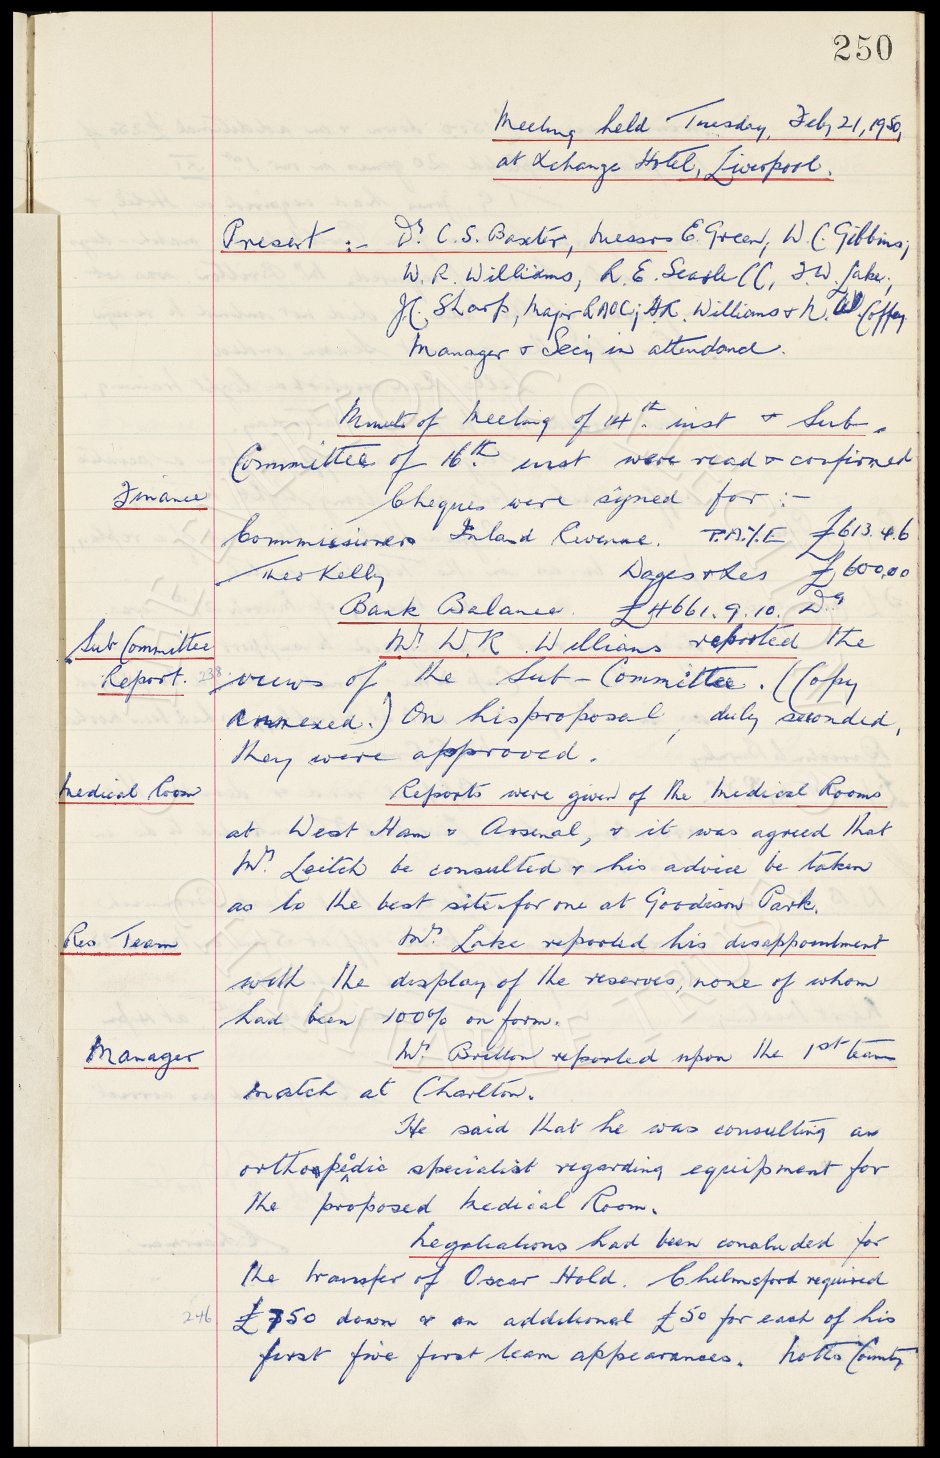 250
Meeting held Tuesday, Feby 21, 1950,
at Exchange Hotel, Liverpool.
Present :- Dr. C. S. Baxter, Messrs E. Green, W. C. Gibbins,
W. R. Williams, R. E. Searle CC, F. W. Lake,
J C. Sharp, Major R A O C; A. R. Williams & N. W. Coffey
Manager & Secy in attendance.
Minutes of Meeting of 14th. inst & Sub-
Committee of 16th. inst were read & confirmed
Finance
Cheques were signed for :-
Commissioners Inland Revenue. P.A.Y.E £613.4.6
Theo Kelly Wages & Exes £600.0.0
Bank Balance. £4661.9.10. Dr
Sub Committee
Report. 238
Mr. W. R. Williams reported the
views of the Sub-Committee. (Copy
annexed.) On his proposal, duly seconded,
they were approved.
Medical Room
Reports were given of the Medical Rooms
at West Ham & Arsenal, & it was agreed that
Mr. Leitch be consulted & his advice be taken
as to the best site for one at Goodison Park.
Res Team
Mr. Lake reported his disappointment
with the display of the reserves, none of whom
had been 100% on form.
Manager
Mr. Britton reported upon the 1st team
match at Charlton.
He said that he was consulting an
orthopædic specialist regarding equipment for
the proposed Medical Room.
Negotiations had been concluded for
the transfer of Oscar Hold. Chelmsford required
246
£750 down & an additional £50 for each of his
first five first team appearances. Notts County